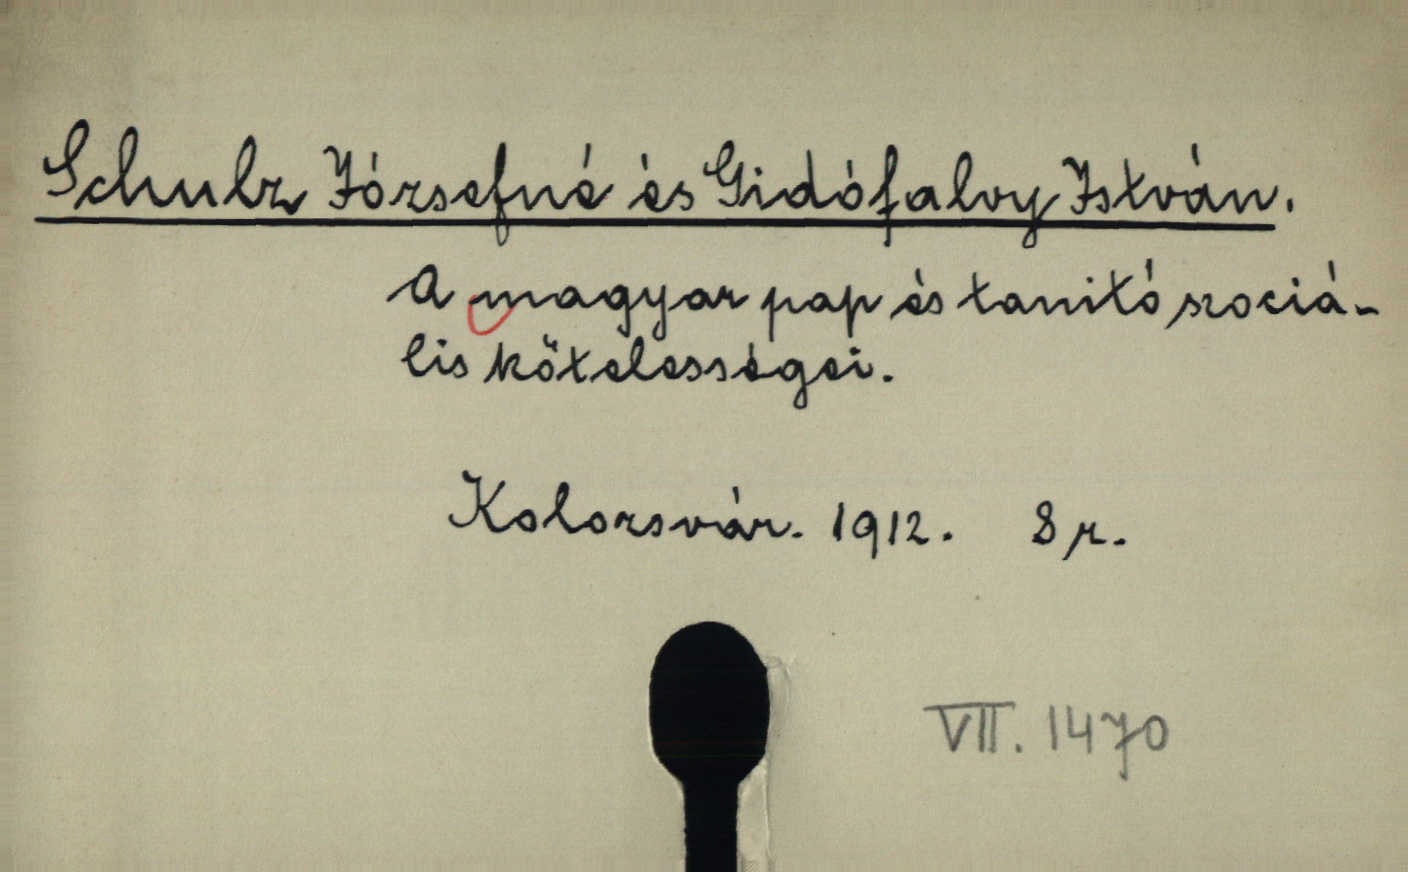 Schulz Józsefné és Gidófalvy István.
A magyar pap és tanító szociá-
lis kötelességei.
Kolozsvár. 1912. 8 r.
VII. 1470